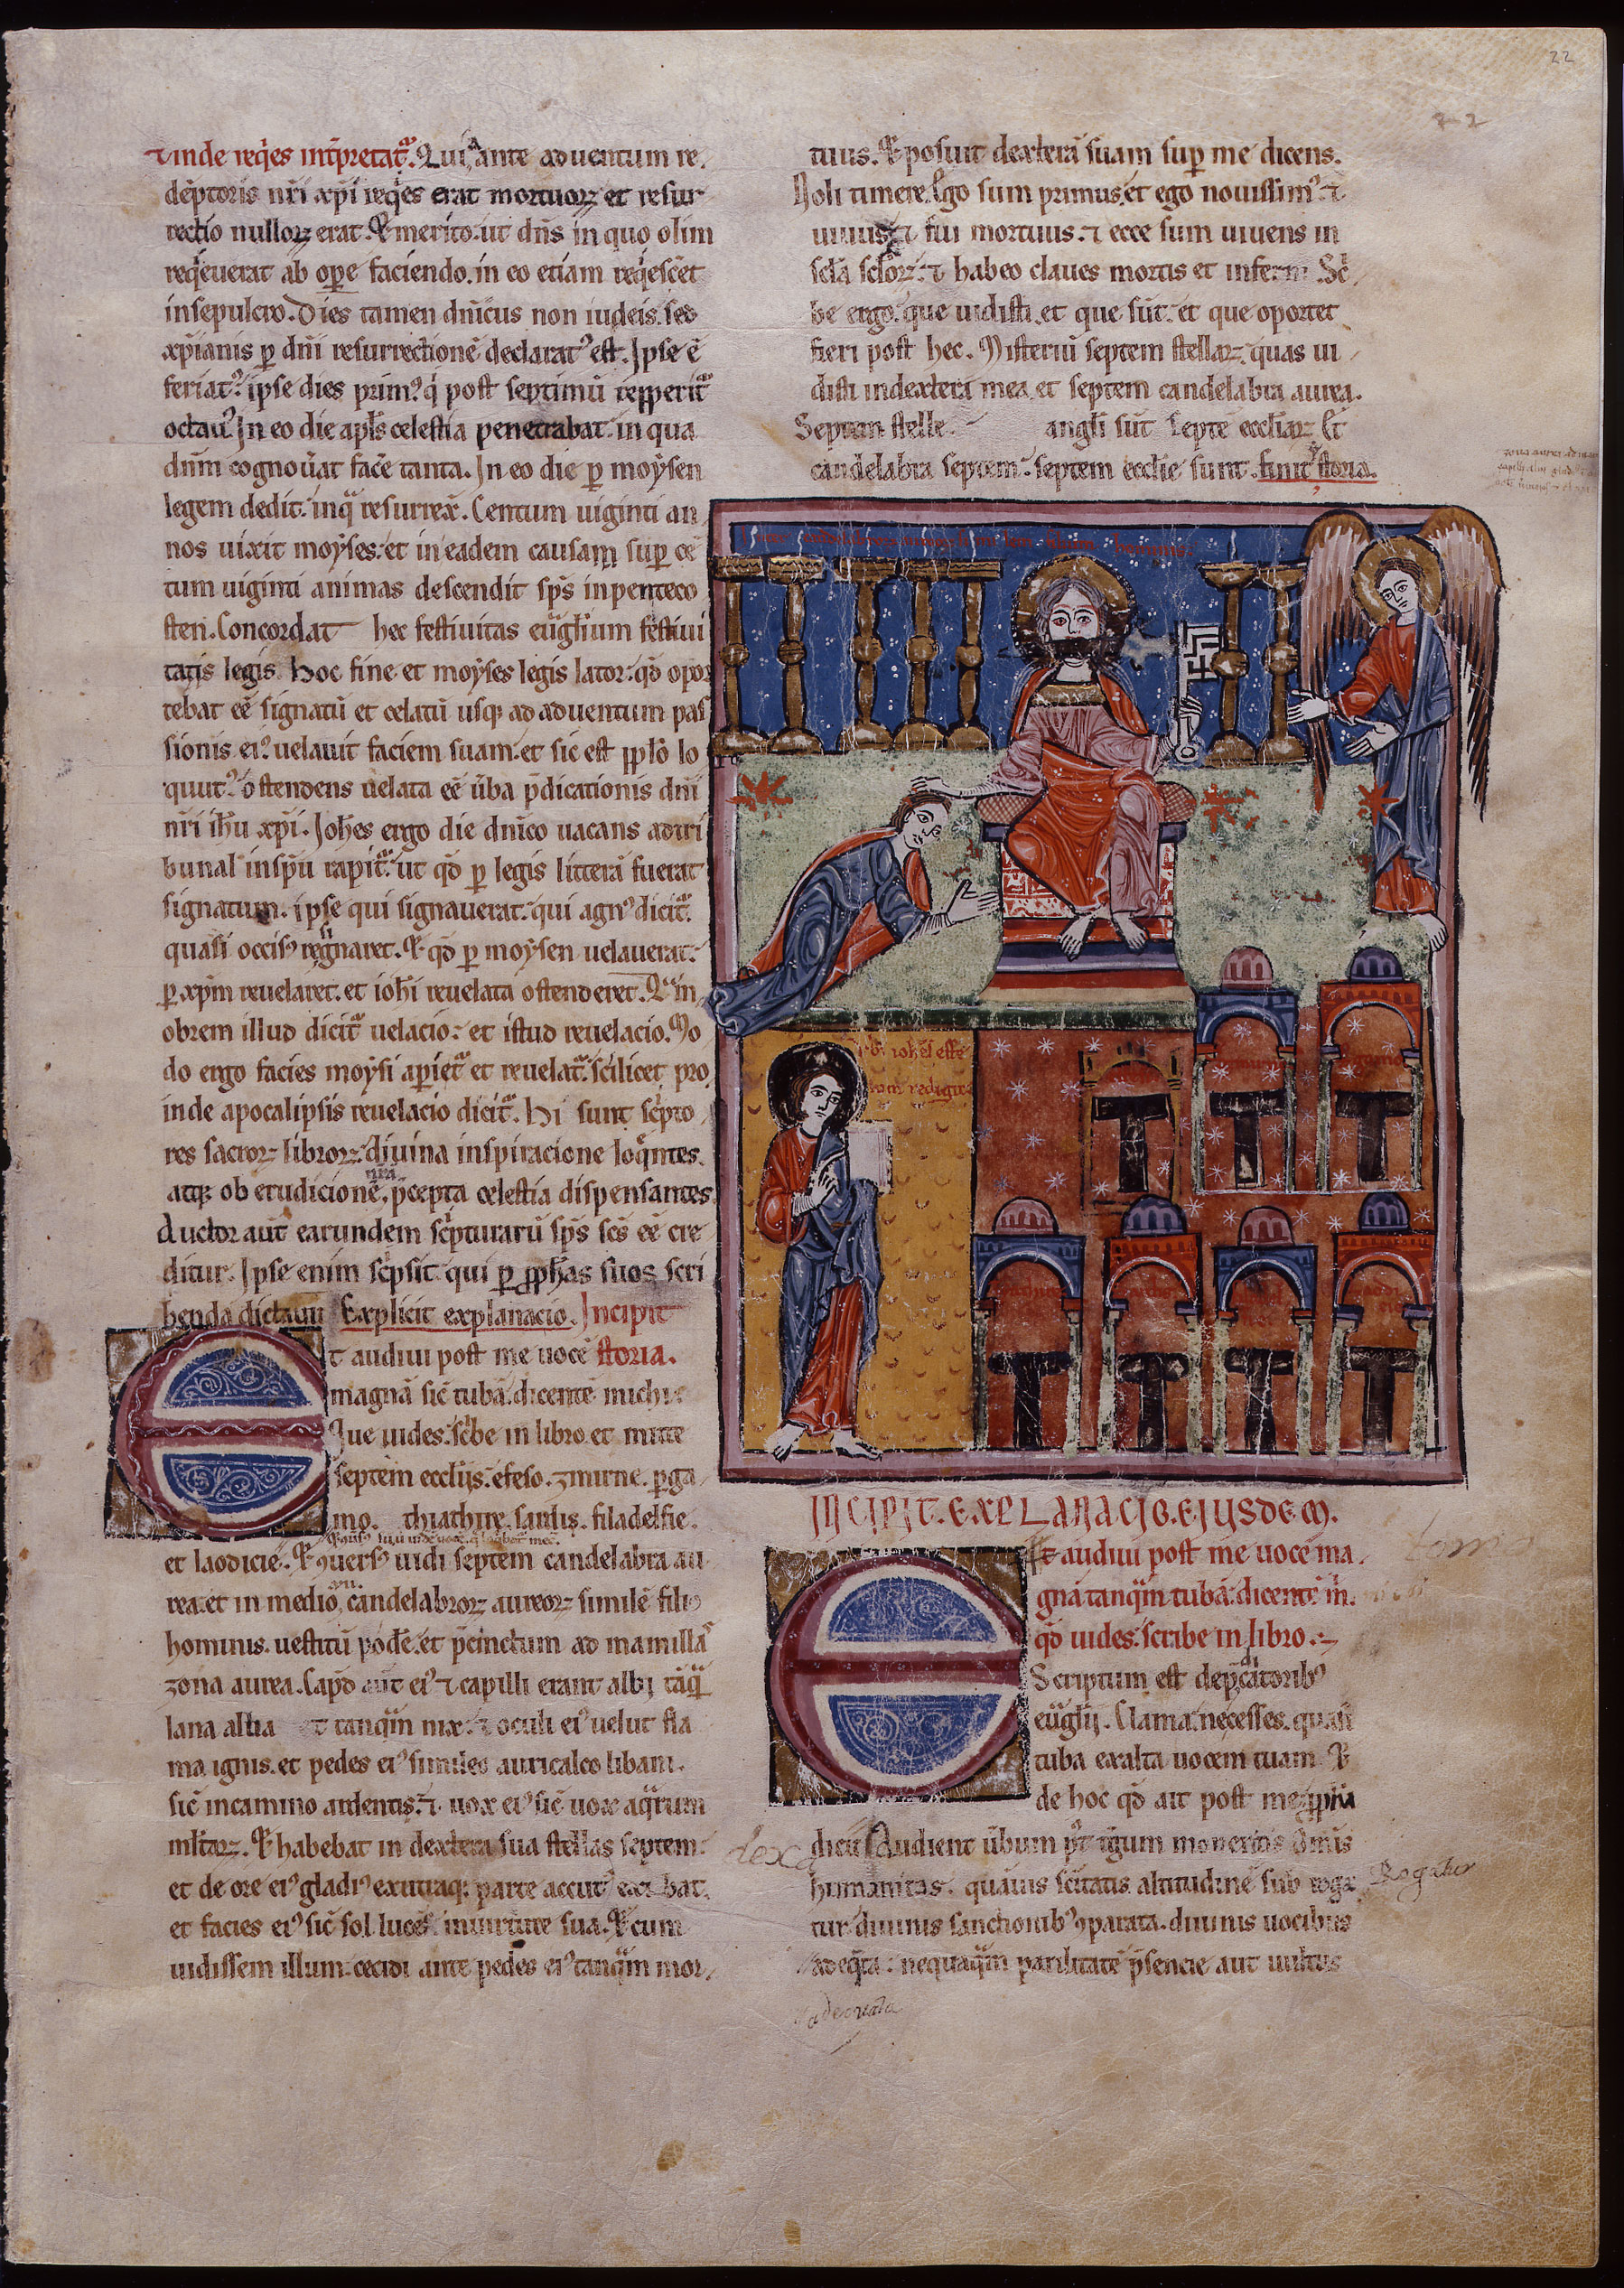 22
22
Unde req̇es int̄pretat᷑. Quia ante aduentum re
dēptoris nr̄i xp̄i req̇es erat mortuoꝝ et resur
rectio nulloꝝ erat. Et merito: ut dn̄s in quo olim
req̇euerat ab oꝑe faciendo. in eo etiam req̇esc̄et
in sepulcro. Dies tamen dn̄icus non iudeis. sed
xp̄ianis ꝑ dn̄i resurrectionē declaratꝰ est. Ipse ē
feriatꝰ: ipse dies primꝰ. q̇ post septimū reꝑperit᷑
octauꝰ. In eo die apl̄s celestia penetrabat. in qua
dn̄m cognou̅at fac̄e tanta. In eo die ꝑ moẏsen
legem dedit. in qᵃ resurrex̄. Centum uiginti an
nos uixit moẏses: et in eadem causam suꝑ cē
tum uiginti animas descendit sp̄s in penteco
sten. Concordat hec festiuitas eu̅gl̄ium festiui
tatis legis. Hoc fine et moẏses legis lator: qd̄ opor
tebat eē signatū et celatū usqꝫ ad aduentum pas
sionis eiꝰ. uelauit faciem suam. et sic est pp̄lo lo
quutꝰ. ostendens uelata eē u̅ba p̄dicationis dn̄i
nr̄i ih̄u xp̄i. Ioh̄es ergo die dn̄ico uacans ad tri
bunal in sp̄u rapit᷑. ut qd̄ ꝑ legis litterā fuerat
signatum. ipse qui signauerat. qui agnꝰ dicit᷑.
quasi occisꝰ resignaret. Et qd̄ ꝑ moẏsen uelauerat.
ꝑ xp̄m reuelaret. et ioh̄i reuelata ostenderet. Quā
obrem illud dicit᷑ uelacio: et istud reuelacio. Mo
do ergo facies moẏsi aꝑiet᷑ et reuelat᷑. scilicet pro
inde apocalipsis reuelacio dicit᷑. Hi sunt sc̄pto
res sacroꝝ libroꝝ: diuina inspiracione loq̄ntes.
atqꝫ ob erudicionē nr̄a p̄cepta celestia dispensantes
Auctor aut̄ earundem sc̄pturarū sp̄s sc̄s eē cre
ditur. Ipse enim sc̄psit. qui ꝑ ꝓph̄as suos scri
benda dictauit Explicit explanacio. Incipit
Et audiui post me uocē storia.
magnā sic̄ tubā. dicentē michi.
Que uides. sc̄be in libro et mitte
septem eccl̄ijs. efeso. zmirne. ꝑga
mo. thiathire. sardis. filadelfie.
et laodicie. Et ꝯuersꝰ uidi septem candelabra au
rea. et in medio .vii. candelabroꝝ aureoꝝ similē filio
hominis. uestitū podē. et p̄cinctum ad mamillas
zona aurea. Capđ aut̄ eiꝰ ⁊ capilli erant albi tāq̄
lana alba et tanq̄m nix. ⁊ oculi eiꝰ uelut fla
ma ignis. et pedes eiꝰ similes auricalco libani.
sic̄ in camino ardentis. ⁊ uox eiꝰ sic̄ uox aq̄rum
ml̄taꝝ. Et habebat in dextera sua stellas septem.
et de ore eiꝰ gladiꝰ ex utraqꝫ parte accutꝰ exibat.
et facies eiꝰ sic̄ sol. lucet in uirtute sua. Et cum
uidissem illum. cecidi ante pedes eiꝰ tanq̄m mor
tuus. Et posuit dexterā suam suꝑ me dicens.
Noli timere. Ego sum primus et ego nouissimꝰ. ⁊
uiuus. ⁊ fui mortuus. ⁊ ecce sum uiuens in
scl̄a scl̄oꝝ. ⁊ habeo claues mortis et inferni. Sc̄
be ergo. que uidisti. et que sūt. et que oportet
fieri post hec. Misteriū septem stellaꝝ. quas ui
disti in dextera mea. et septem candelabra aurea.
Septem stelle. angl̄i sūt septē eccl̄iaꝝ. Et
candelabra septem. septem eccl̄ie sunt. finit storia.
INCIPIT. EXPLANACIO. EIUSDEM.
Et audiui post me uocē ma
gnā tanq̄m tubā. dicentē m̄.
qđ uides. scribe in libro.
Scriptum est de p̄dicatoribꝰ
eu̅gl̄ij. Clama. ne cesses. quasi
tuba exalta uocem tuam. Et
de hoc qđ ait post me. ꝓph̄a
dicit. Audient u̅bum p̄t t̄gum monentis. Omīs
humanitas. quāuis sc̄itatis altitudinē sub roga
tur. diuinis sanctionibꝰ ꝯparata. diuinis uocibus
adeq̄ta: nequaq̄m parilitatē p̄sencie aut uultus
Rogatur
adequata